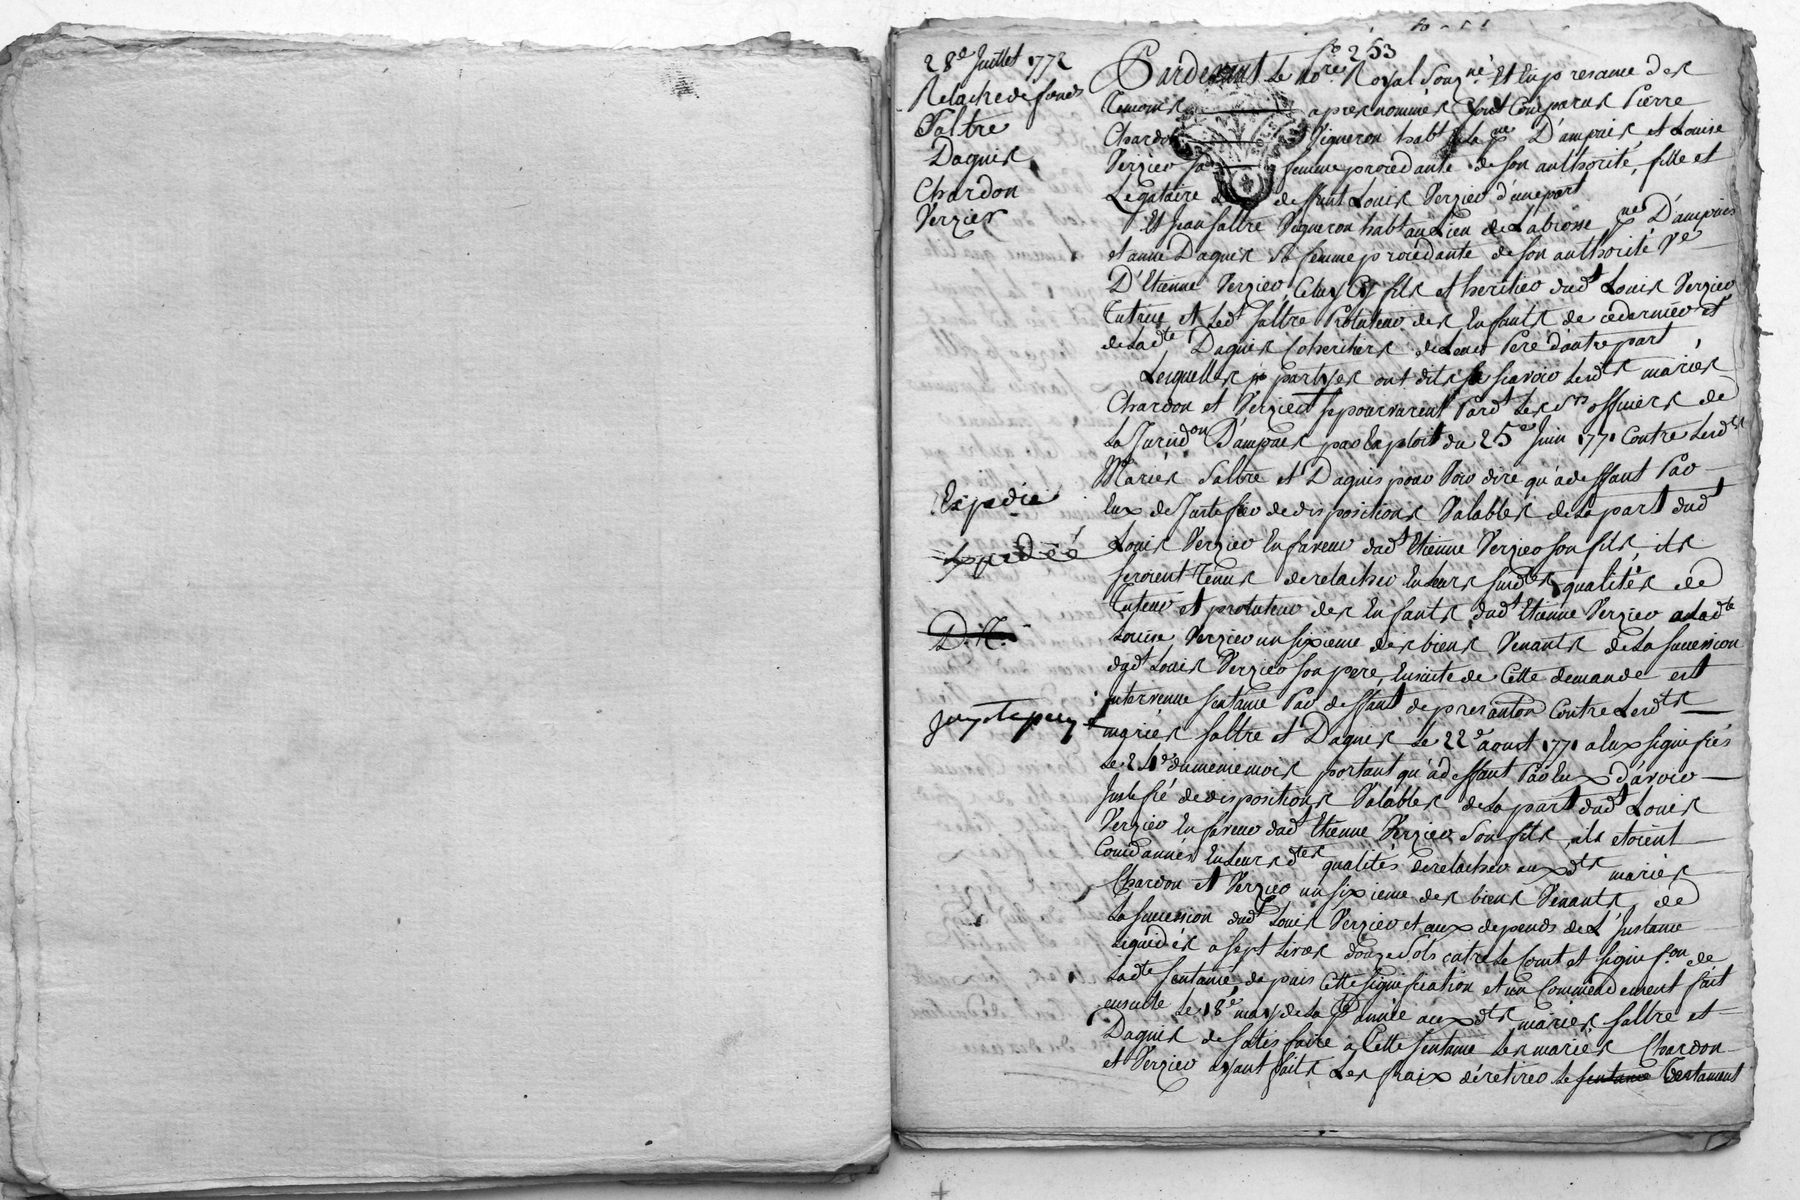 28e Juillet 1772
Relache de fonds
Saltre
Daguis
Chardon
Verzier
Expedié
Expediée
D. N.
fo 253
Pardevant le no.re Royal sousné et en presance des
temoins apres nommés sont comparus Pierre
Chardon Vigneron habt la pne D'ampuis, et Louise
Verzier sa femme procedante de son authorité, fille et
Legataire de deffunt Louis Verzier d'une part
Et Jean Saltre Vigneron habt au lieu de Labrosse pne D'ampuis
et anne Daguis sa femme procedante de son authorité Ve
D'Etienne Verzier, Celuy cy fils et heritier dudt Louis Verzier
Tutrice et Ledt Saltre Protuteur des Enfants de ce dernier et
de Ladte Daguis Coheritiers de Leur Pere d'autre part
Lesquelles parties ont dit scavoir Lesdts mariés
Chardon et Verzier se pourvurent Pardt Les Srs officiers de
la Juridon D'ampuis par Exploit du 25e Juin 1771 Contre Lesdts
Mariés Saltre et Daguis pour Voir dire qu'a deffaut Par
Eux de Justifier de dispositions Valables de la part dudt
Louis Verzier En faveur dudt Etienne Verzier son fils, ils
seroient tenus de relacher En leurs susdtes qualités de
Tutrice et protuteur des Enfants dudt Etienne Verzier a Ladte
Louise Verzier un sixieme des biens Venants de La succession
dudt Louis Verzier son pere, Ensuite de Cette demande est
intervenue sentance Par deffaut de presantaon Contre Lesdts
mariés Saltre et Daguis Le 22e aoust 1771 a Eux signifiés
Le 24e du meme mois portant qu'a deffaut Par Eux d'avoir
Justifié de dispositions Valables de la part dudt Louis
Verzier En faveur dudt Etienne Verzier son fils, ils etoient
Condannés En Leursdtes qualités de relacher auxdts mariés
Chardon et Verzier un sixieme des biens Venants, de
La succession dudt Louis Verzier et aux depends de L'Instance
Liquidés a sept Livres douze sols outre Le Cout et signifon de
Ladte sentance, depuis Cette signification et un Commendement fait
ensuite Le 18e may de la pte année auxdts mariés Saltre et
Daguis de satisfaire a Cette sentance Les mariés Chardon
et Verzier ayant faits Les fraix de retirer Le sentance Testament